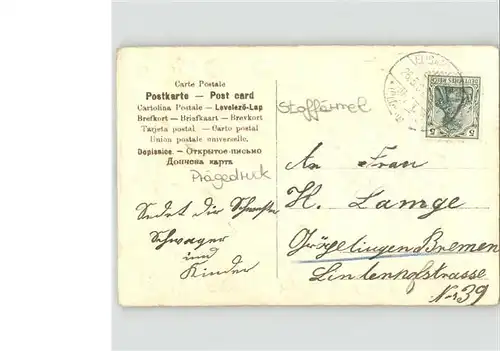 Carte Postale
Postkarte — Post card
Cartolina Postale — Levelező-Lap
Brefkort — Briefkaart — Brevkort
Tarjeta postal. — Carto postal
Union postale universelle.
Dopisnice. — Открытое письмо
Дописна карта
Stoffärmel
Prägedruk
Schwager
und
Kinder
An Frau
H. Lamge
Bremen
Lindenhofstrasse
Nr 39
DEUTSCHES REICH
5
5